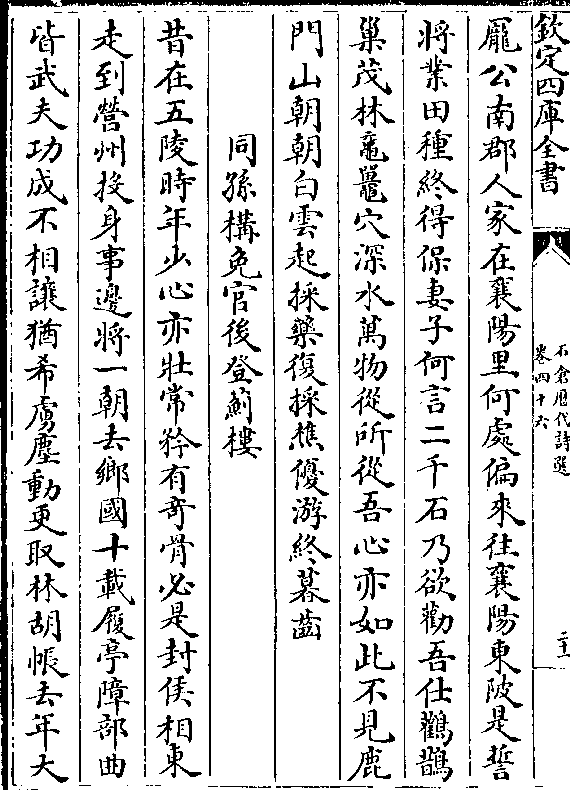 欽定四庫全書
石倉歷代詩選
卷四十六
二十一
龐公南郡人家在襄陽里何處偏來往襄陽東陂是誓
將業田種終得保妻子何言二千石乃欲勸吾仕鸛鵲
巢茂林黿鼉穴深水萬物從所從吾心亦如此不見鹿
門山朝朝白雲起採藥復採樵優游終暮齒
同孫構免官後登薊樓
昔在五陵時年少心亦壯常矜有奇骨必是封侯相東
走到營州投身事邊將一朝去鄉國十載履亭障部曲
皆武夫功成不相讓猶希虜塵動更取林胡帳去年大